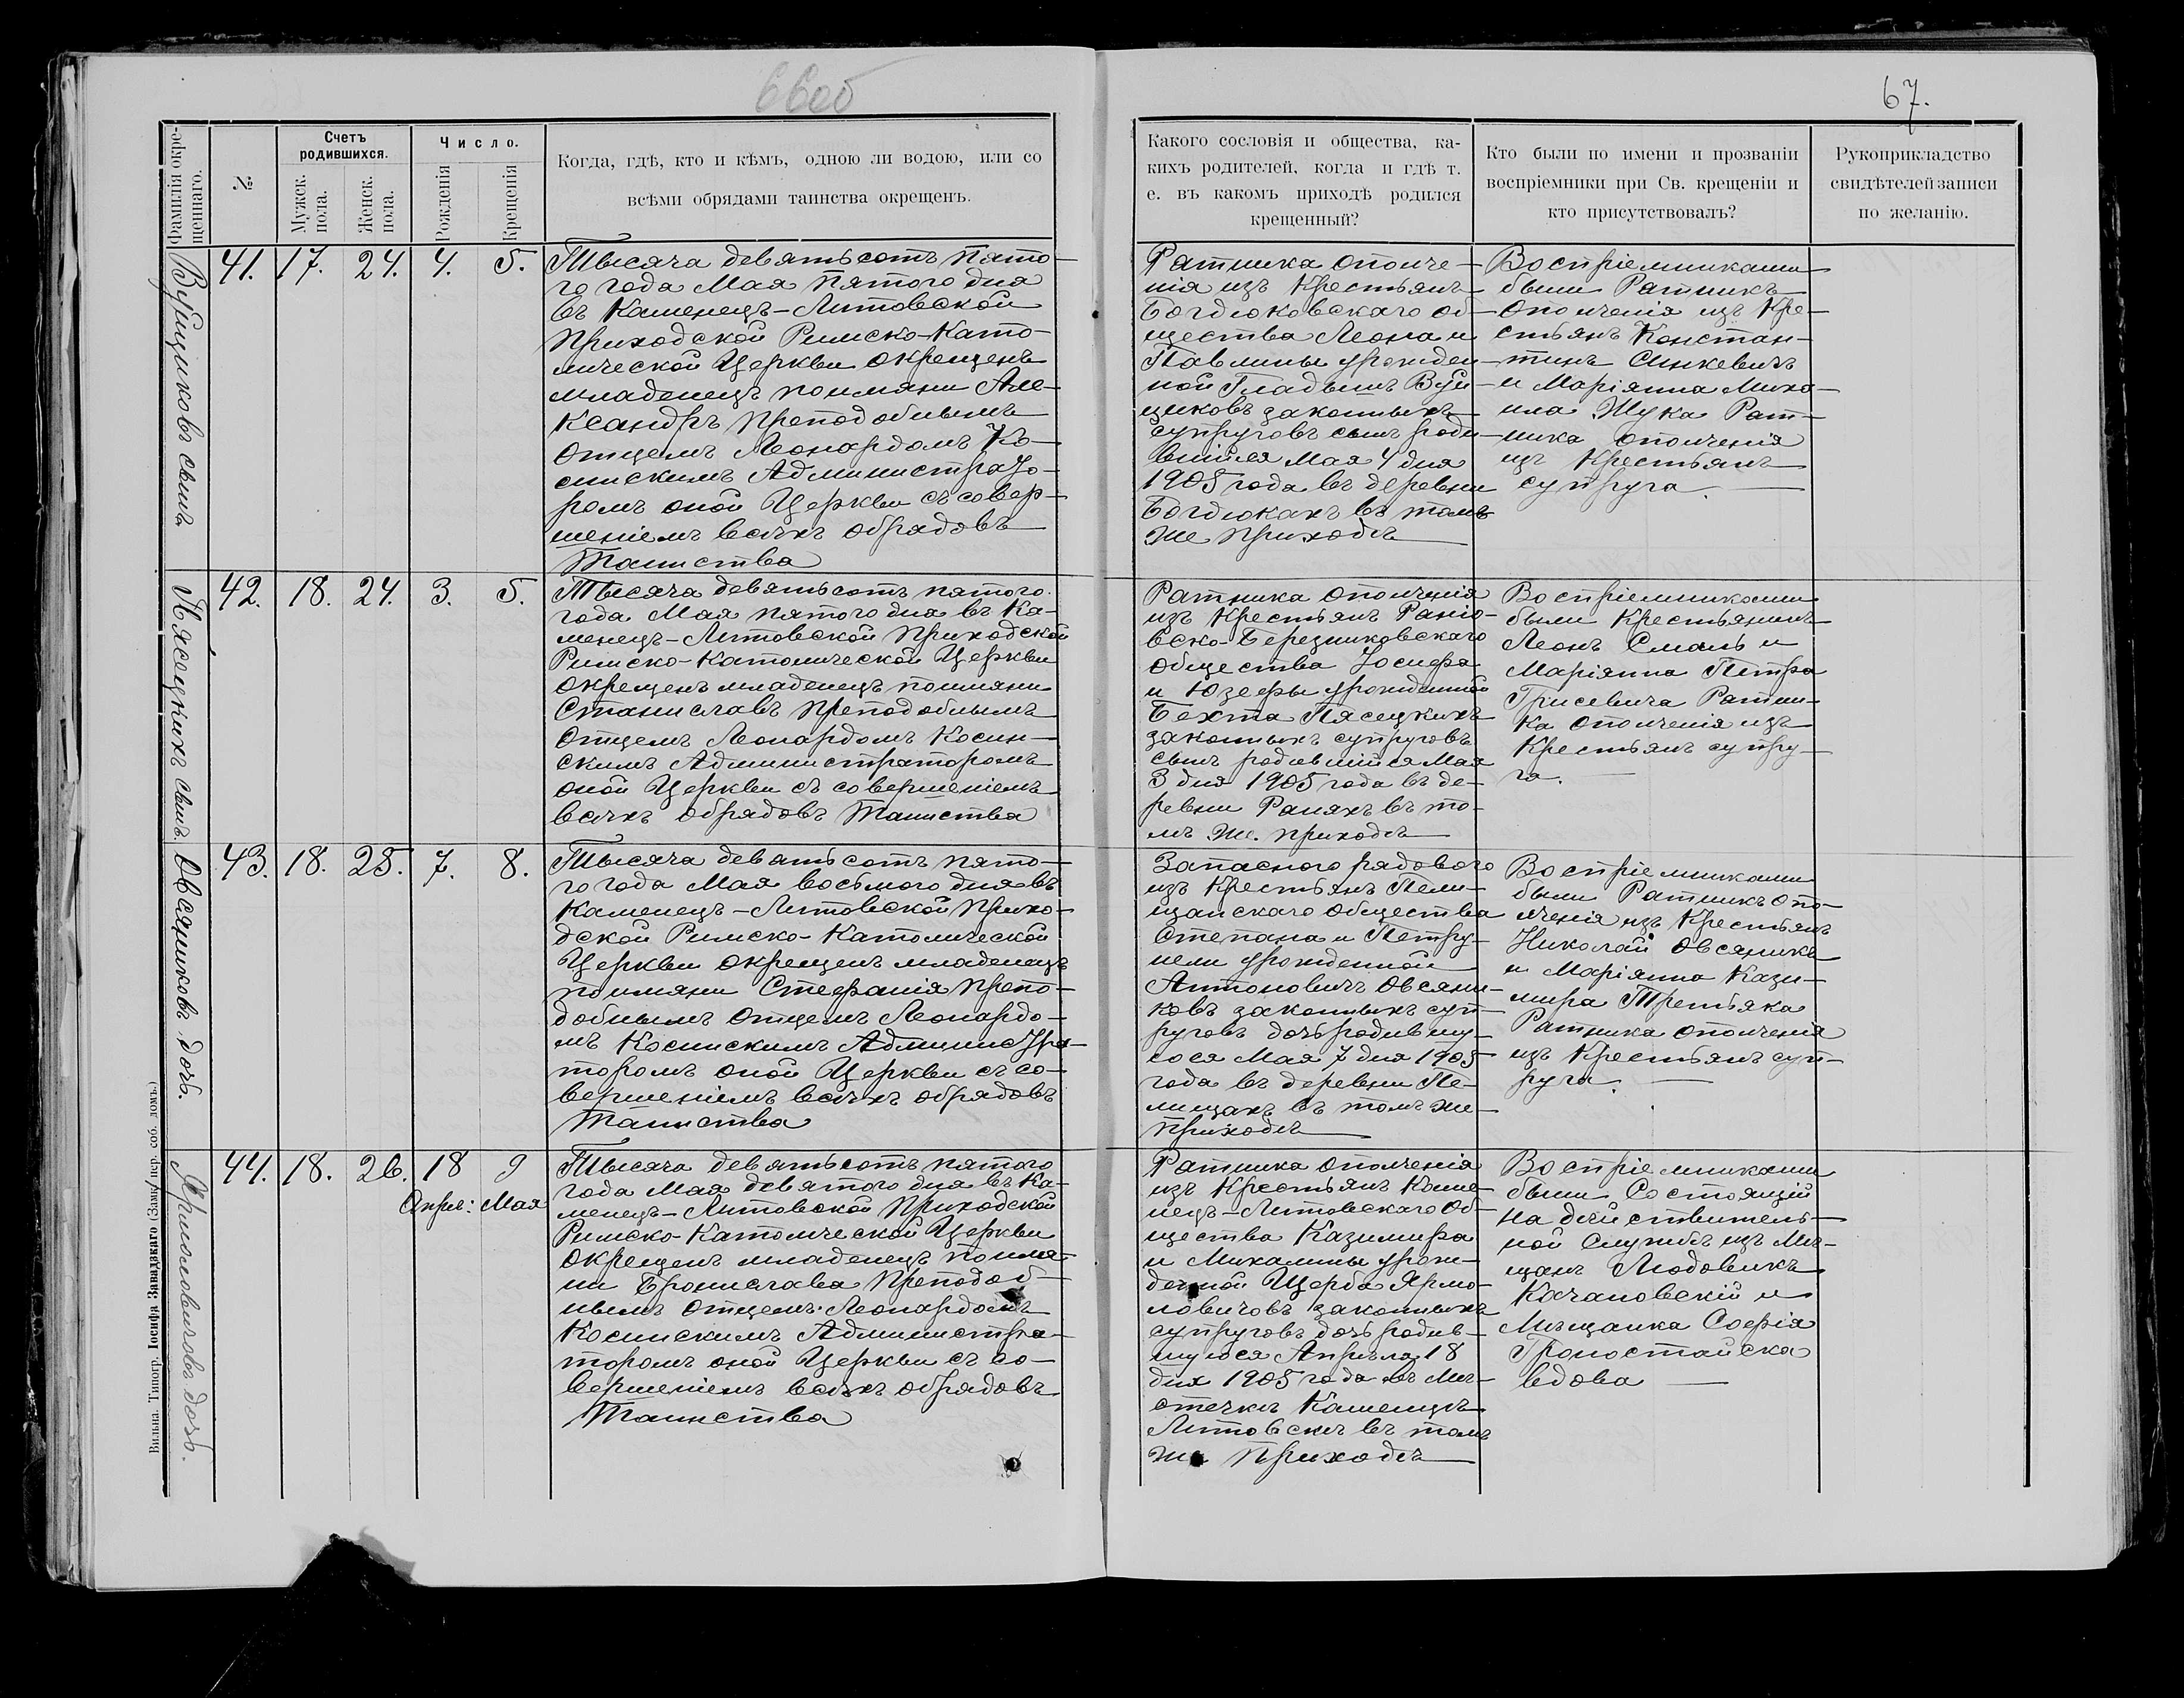 66об
67.
Фамилія окре-
щеннаго.
№.
Счетъ
родившихся.
Мужск.
пола.
Женск.
пола.
Число.
Рожденія
Крещенія
Когда, гдѣ, кто и кѣмъ, одною ли водою, или со
всѣми обрядами таинства окрещенъ.
Какого сословія и общества, ка-
кихъ родителей, когда и гдѣ т.
е. въ какомъ приходѣ родился
крещенный?
Кто были по имени и прозваніи
воспріемники при Св. крещеніи и
кто присутствовалъ?
Рукоприкладство
свидѣтелей записи
по желанію.
41. 17. 24. 4. 5.
Тысяча девятьсотъ пято-
го года Мая пятого дня
въ Каменецъ-Литовской
Приходской Римско-Като-
лической Церкви окрещенъ
младенецъ поимяни Але-
ксандръ Преподобнымъ
Отцемъ Леонардомъ Ко-
синскимъ Администрато-
ромъ оной Церкви съ совер-
шеніемъ всѣхъ обрядовъ
Таинства
Ратника ополче-
нія изъ Крестьянъ
Богдюковскаго об-
щества Леона и
Павлины урожден-
ной Гладышъ Вуй-
циковъ законныхъ
супруговъ сынъ роди-
вшійся Мая 4 дня
1905 года въ деревни
Богдюкахъ въ томъ
же приходѣ
Воспріемниками
были Ратникъ
Ополченія изъ Кре-
стьянъ Констан-
тинъ Синкевичъ
и Маріянна Миха-
ила Жука Рат-
ника ополченія
изъ Крестьянъ
супруга.
42. 18. 24. 3. 5.
Пясецкихъ сынъ.
Тысяча девятьсотъ пятого
года Мая пятого дня въ Ка-
менецъ-Литовской Приходской
Римско-Католической Церкви
окрещенъ младенецъ поимяни
Станиславъ Преподобнымъ
Отцемъ Леонардомъ Косин-
скимъ Администраторомъ
оной Церкви съ совершеніемъ
всѣхъ обрядовъ Таинства
Ратника ополченія
изъ Крестьянъ Раніо-
вско-Березниковскаго
общества Іосифа
и Юзефы урожденной
Бехта Пясецкихъ
законныхъ супруговъ
сынъ родившійся Мая
3 дня 1905 года въ де-
ревни Раняхъ въ то-
мъ же приходѣ
Воспріемниками
были Крестьянинъ
Леонъ Смаль и
Маріянна Петра
Грисевича Ратни-
ка ополченія изъ
Крестьянъ супру-
га.
43. 18. 25. 7. 8.
Овсяниковъ дочь.
Тысяча девятьсотъ пято-
го года Мая восьмого дня въ
Каменецъ-Литовской Прихо-
дской Римско-Католической
Церкви окрещенъ младенецъ
поимяни Стефанія Препо-
добнымъ Отцемъ Леонардо-
мъ Косинскимъ Администра-
торомъ оной Церкви съ со-
вершеніемъ всѣхъ обрядовъ
Таинства
Запасного рядового
изъ Крестьянъ Пели-
щанскаго общества
Степана и Петру-
нели урожденной
Антоновичъ Овсяни-
ковъ законныхъ суп-
руговъ дочь родившу-
юся Мая 7 дня 1905
года въ деревни Пе-
лищахъ въ томъ же
приходѣ
Воспріемниками
были Ратникъ опо-
лченія изъ Крестьянъ
Николай Овсяникъ
и Маріянна Кази-
мира Третьяка
Ратника ополченія
изъ Крестьянъ суп-
руга.
44. 18. 26. 18 9
Апрел: Мая
Ярмоловичовъ дочь.
Тысяча девятьсотъ пятого
года Мая девятого дня въ Ка-
менецъ-Литовской Приходской
Римско-Католической Церкви
окрещенъ младенецъ поимя-
ни Бронислава Преподоб-
нымъ Отцемъ Леонардомъ
Косинскимъ Администра-
торомъ оной Церкви съ со-
вершеніемъ всѣхъ обрядовъ
Таинства
Ратника ополченія
изъ Крестьянъ Каме-
нецъ-Литовскаго Об-
щества Казимира
и Михалины урож-
денной Щерба Ярмо-
ловичовъ законныхъ
супруговъ дочь родив-
шуюся Апрѣля 18
дня 1905 года въ Мѣ-
стечкѣ Каменцѣ-
Литовскѣ въ томъ
же Приходѣ
Воспріемниками
были Состоящій
на дѣйствитель-
ной Службѣ изъ Мѣ-
щанъ Людовикъ
Качановскій и
Мѣщанка Софія
Гроностайска
вдова
Вильна. Типогр. Іосифа Завадзкаго (Замк. пер. соб. домъ.)